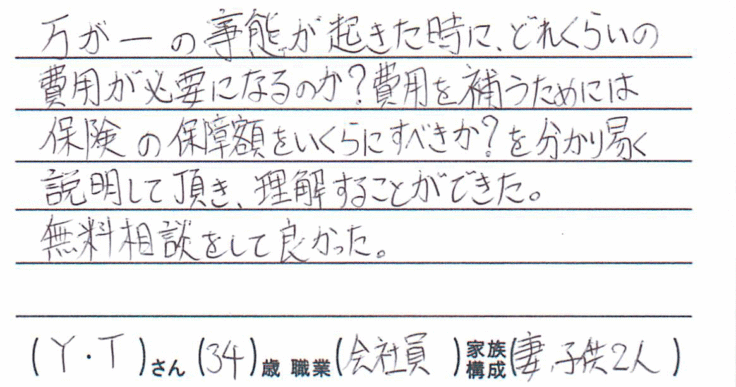 万が一の事態が起きた時に、どれくらいの
費用が必要になるのか?費用を補うためには
保険の保障額をいくらにすべきか?を分かり易く
説明して頂き、理解することができた。
無料相談をして良かった。
(Y・T)さん (34)歳 職業(会社員 )家族構成(妻、子供2人 )